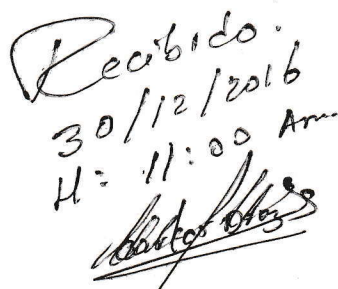 Recibido.
30/12/2016
H: 11:00 Am.